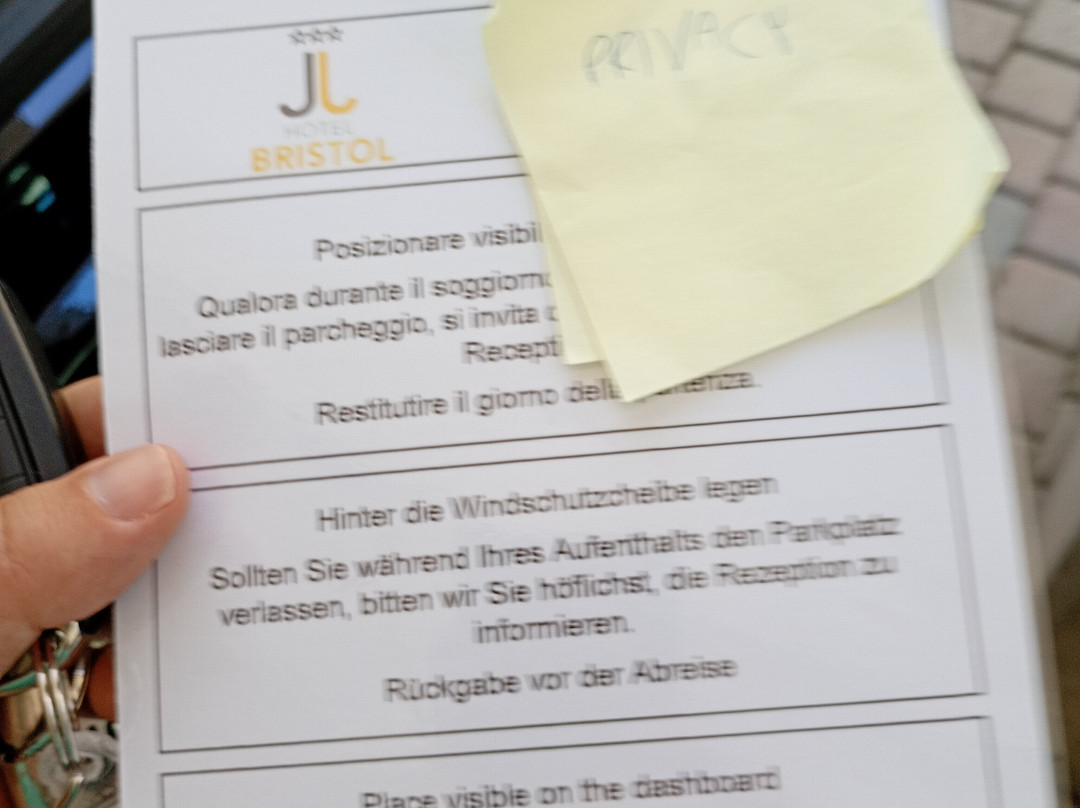 PRIVACY
HOTEL
BRISTOL
Posizionare visibil
Qualora durante il soggiorno
lasciare il parcheggio, si invita
Recept
Restitutire il giorno della
Hinter die Windschutzcheibe legen
Sollten Sie während Ihres Aufenthalts den Parkplatz
verlassen, bitten wir Sie höflichst, die Rezeption zu
informieren.
Rückgabe vor der Abreise
Place visible on the dashboard